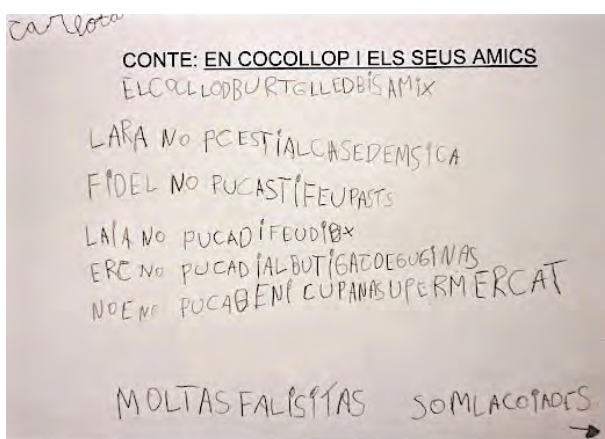 carlota
CONTE: EN COCOLLOP I ELS SEUS AMICS
ELCOCLLODBURTGLLEDBISAMIX
LARA NO PCESTIALCASEDEMSICA
FIDEL NO PUCASTIFEUPASTS
LAIA NO PUCADIFEUDIBX
ERC NO PUCADIALBUTIGATDEGUGINAS
NOE NO PUCADENI CUPANASUPERMERCAT
MOLTAS FALISITAS SOMLACOIADES
→